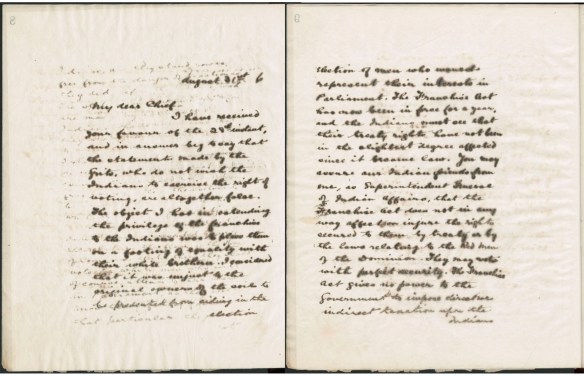 8
August 31st 6
My dear Chief
I have received
your favour of the 28th instant,
and in answer beg to say that
the statements made by the
Grits, who do not wish the
Indians to exercise the right of
voting, are altogether false.
The object I had in extending
the privilege of the franchise
to the Indians was to place them
on a footing of equality with
their white brethren. I considered
that it was unjust to the
original owners of the soil to
be prevented from aiding in the
election
8
election of men who would
represent their interests in
Parliament. The Franchise Act
has now been in force for a year,
and the Indians must see that
their treaty rights have not been
in the slightest degree affected
since it became law. You may
assure our Indian friends from
me, as Superintendent General
of Indian Affairs, that the
Franchise Act does not in any
way affect or injure the rights
secured to them by treaty or by
the laws relating to the Red Men
of the Dominion. They may vote
with perfect security. The Franchise
Act gives no power to the
Government to impose direct or
indirect taxation upon the
Indians